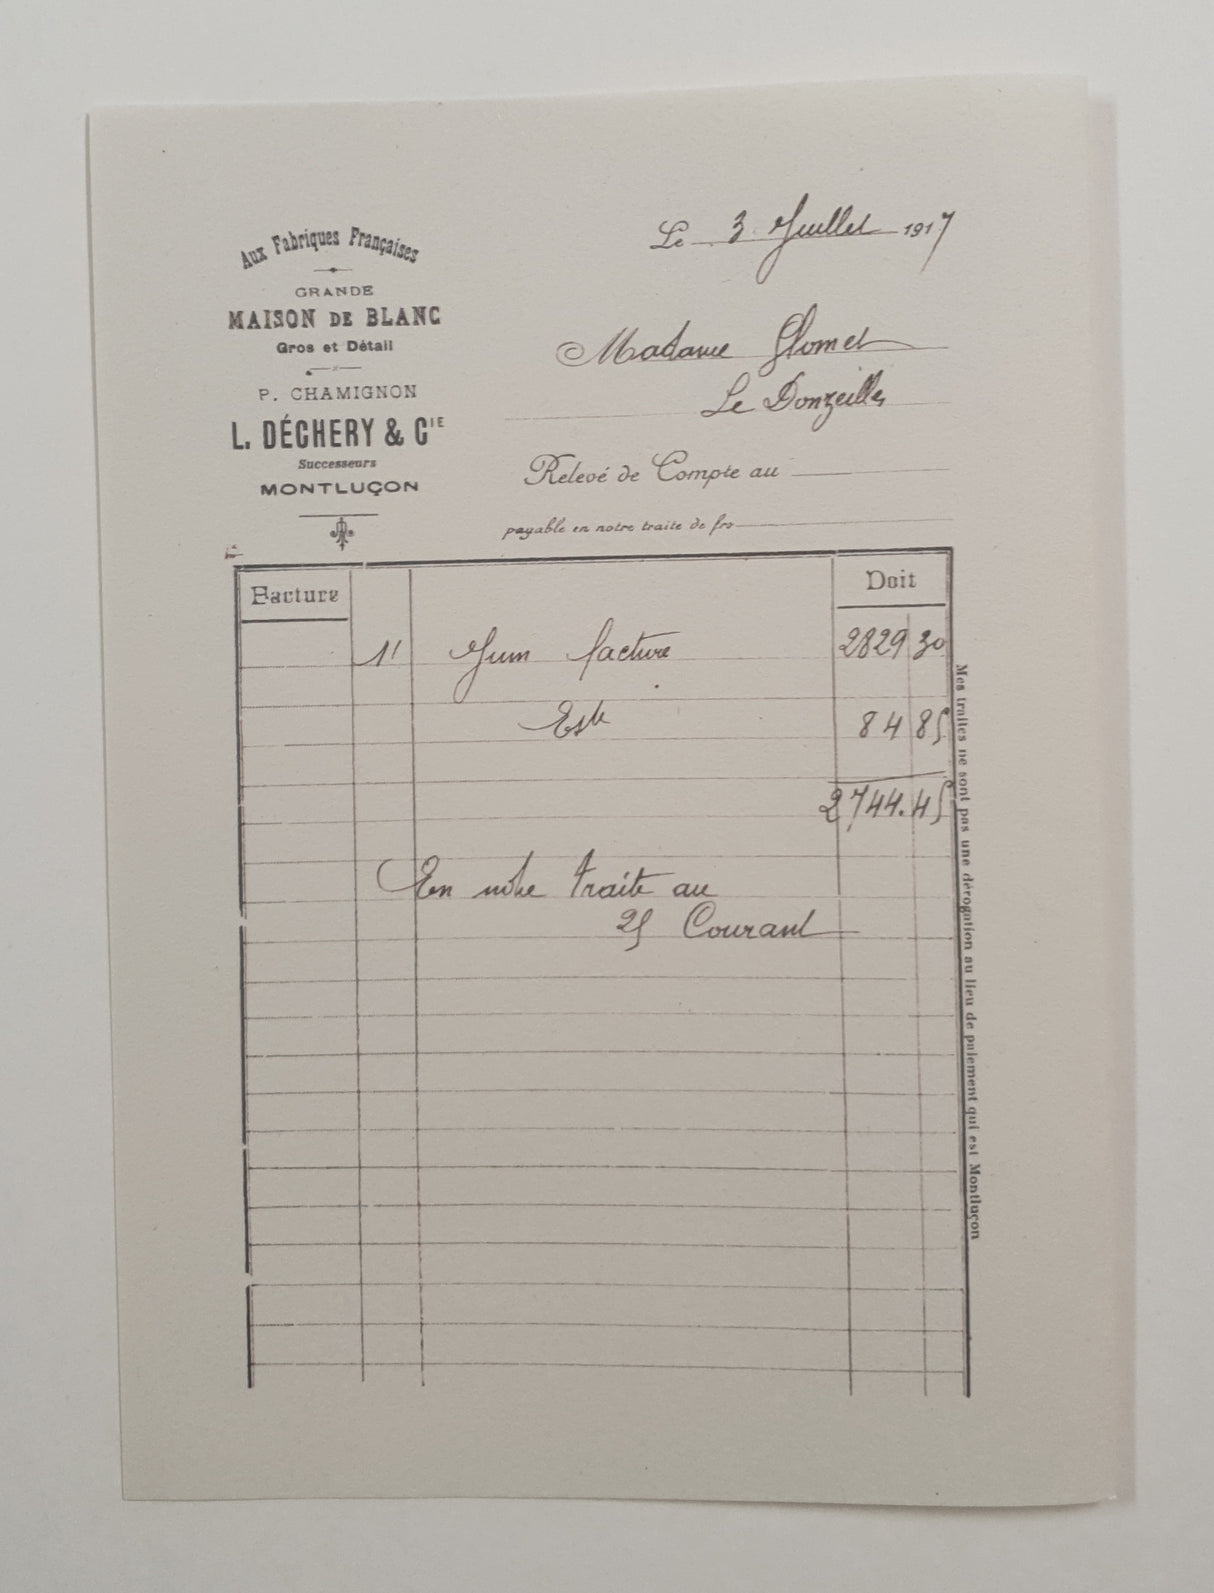 Aux Fabriques Françaises
GRANDE
MAISON DE BLANC
Gros et Détail
P. CHAMIGNON
L. DÉCHERY & CIE
Successeurs
MONTLUÇON
Le 3 Juillet 1917
Madame Glomet
Le Donzeille
Relevé de Compte au
payable en notre traite de frs
Facture
Doit
11 Juin facture 2829 30
Este 84 85
2744.45
En notre traite au
25 Courant
Mes traites ne sont pas une dérogation au lieu de paiement qui est Montluçon